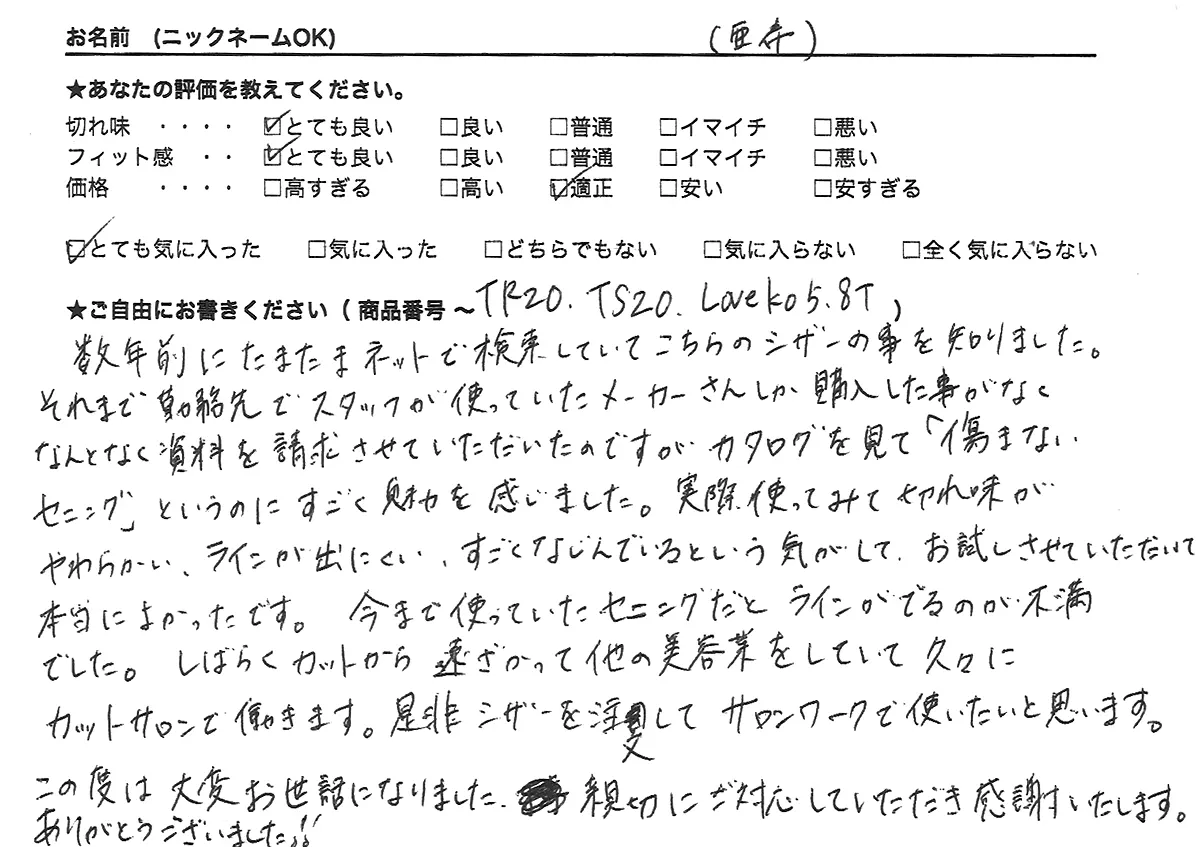 お名前 (ニックネームOK) (亜寿)
★あなたの評価を教えてください。
切れ味 ・・・・ ☑とても良い □良い □普通 □イマイチ □悪い
フィット感 ・・ ☑とても良い □良い □普通 □イマイチ □悪い
価格 ・・・・ □高すぎる □高い ☑適正 □安い □安すぎる
☑とても気に入った □気に入った □どちらでもない □気に入らない □全く気に入らない
★ご自由にお書きください ( 商品番号 ~ TR20. TS20. Loveko5.8T )
数年前にたまたまネットで検索していてこちらのシザーの事を知りました。
それまで勤務先でスタッフが使っていたメーカーさんしか購入した事がなく
なんとなく資料を請求させていただいたのですがカタログを見て「傷まない
セニング」というのにすごく魅力を感じました。実際使ってみて切れ味が
やわらかい、ラインが出にくい、すごくなじんでいるという気がして、お試しさせていただいて
本当によかったです。 今まで使っていたセニングだとラインがでるのが不満
でした。しばらくカットから遠ざかって他の美容業をしていて久々に
カットサロンで働きます。是非シザーを注文してサロンワークで使いたいと思います。
この度は大変お世話になりました、親切にご対応していただき感謝いたします。
ありがとうございました!!